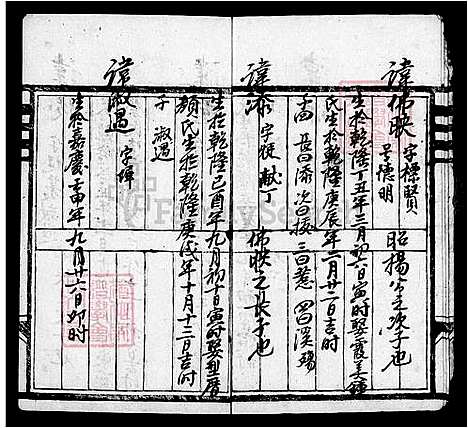 諱佛映 字標賢 号懷明 昭揚公之次子也
生於乾隆丁丑年三月初六日寅时娶霞美鍾
氏生於乾隆庚辰年二月廿二日吉时
子四 長曰添 次曰援 三曰惹 四曰溪
諱添 字 献丁 佛映之長子也
生在乾隆己酉年九月初十日寅时娶型厝
顏氏生在乾隆庚戌年十月十三日吉时
子 淑遇
諱淑遇 字埠
生於嘉慶壬申年九月廿六日卯时
FamilySearch